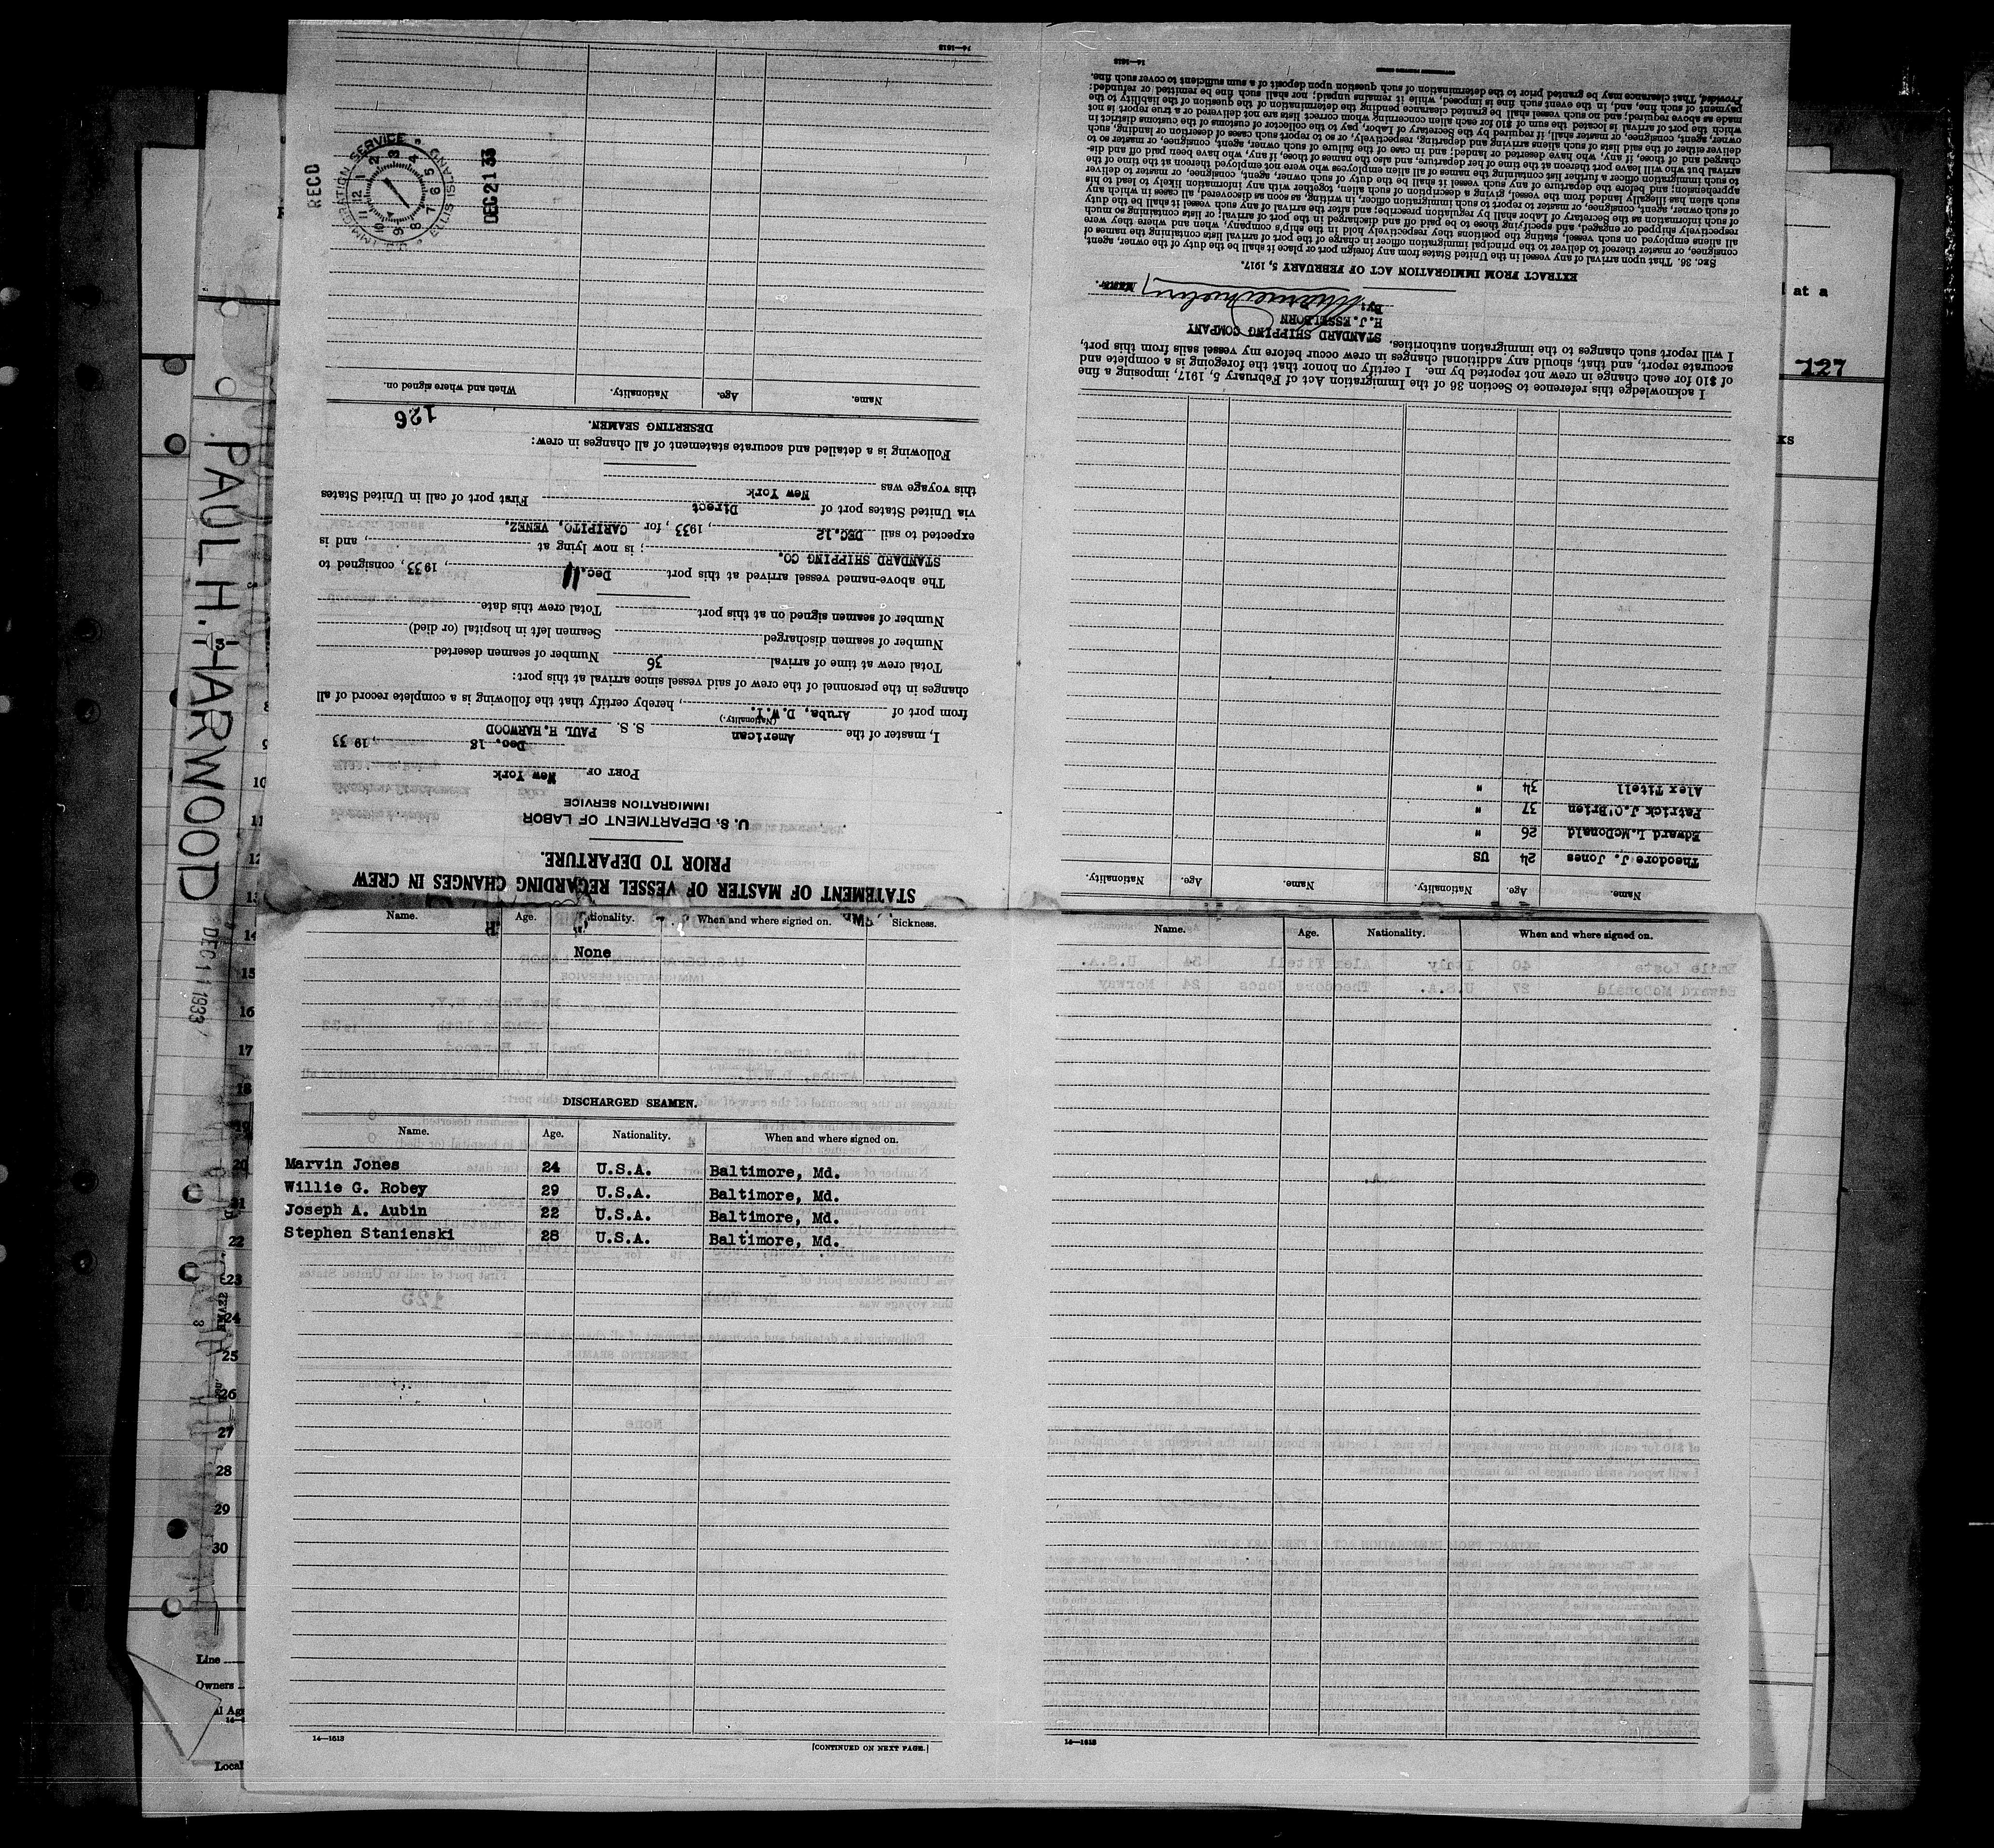 STATEMENT OF MASTER OF VESSEL REGARDING CHANGES IN CREW
PRIOR TO DEPARTURE.
U. S. DEPARTMENT OF LABOR
IMMIGRATION SERVICE
PORT OF New York
Dec. 18, 1933
I, master of the American S. S. PAUL H. HARWOOD
(Nationality.)
from port of Aruba, D.W.I., hereby certify that the following is a complete record of all
changes in the personnel of the crew of said vessel since arrival at this port:
Total crew at time of arrival 36 Number of seamen deserted
Number of seamen discharged Seamen left in hospital (or died)
Number of seamen signed on at this port Total crew this date
The above-named vessel arrived at this port Dec. 11, 1933, consigned to
STANDARD SHIPPING CO. ; is now lying at , and is
expected to sail DEC. 12, 1933, for CARIPITO, VENEZ.
via United States port of Direct First port of call in United States
this voyage was New York
Following is a detailed and accurate statement of all changes in crew:
DESERTING SEAMEN.
126
Name. Age. Nationality. When and where signed on.
RECD
IMMIGRATION SERVICE ELLIS ISLAND
DEC 21 33
14—1613
Name. Age. Nationality. Name. Age. Nationality.
Theodore J. Jones 24 US
Edward L. McDonald 26 "
Patrick J. O'Brien 37 "
Alex Titell 34 "
I acknowledge this reference to Section 36 of the Immigration Act of February 5, 1917, imposing a fine
of $10 for each change in crew not reported by me. I certify on honor that the foregoing is a complete and
accurate report, and that, should any additional changes in crew occur before my vessel sails from this port,
I will report such changes to the immigration authorities.
STANDARD SHIPPING COMPANY
H.J. ESSELBORN
By:
EXTRACT FROM IMMIGRATION ACT OF FEBRUARY 5, 1917.
SEC. 36. That upon arrival of any vessel in the United States from any foreign port or place it shall be the duty of the owner, agent,
consignee, or master thereof to deliver to the principal immigration officer in charge of the port of arrival lists containing the names of
all aliens employed on such vessel, stating the positions they respectively hold in the ship's company, when and where they were
respectively shipped or engaged, and specifying those to be paid off and discharged in the port of arrival; or lists containing so much
of such information as the Secretary of Labor shall by regulation prescribe; and after the arrival of any such vessel it shall be the duty
of such owner, agent, consignee, or master to report to such immigration officer, in writing, as soon as discovered, all cases in which any
such alien has illegally landed from the vessel, giving a description of such alien, together with any information likely to lead to his
apprehension; and before the departure of any such vessel it shall be the duty of such owner, agent, consignee, or master to deliver
to such immigration officer a further list containing the names of all alien employees who were not employed thereon at the time of the
arrival but who will leave port thereon at the time of her departure, and also the names of those, if any, who have been paid off and dis-
charged and of those, if any, who have deserted or landed; and in case of the failure of such owner, agent, consignee, or master so to
deliver either of the said lists of such aliens arriving and departing, respectively, or so to report such cases of desertion or landing, such
owner, agent, consignee, or master shall, if required by the Secretary of Labor, pay to the collector of customs of the customs district in
which the port of arrival is located the sum of $10 for each alien concerning whom correct lists are not delivered or a true report is not
made as above required; and no such vessel shall be granted clearance pending the determination of the question of the liability to the
payment of such fine, and, in the event such fine is imposed, while it remains unpaid; nor shall such fine be remitted or refunded:
Provided, That clearance may be granted prior to the determination of such question upon deposit of a sum sufficient to cover such fine.
14—1613
Name. Age. Nationality. When and where signed on. Sickness.
None
DISCHARGED SEAMEN.
Name. Age. Nationality. When and where signed on.
Marvin Jones 24 U.S.A. Baltimore, Md.
Willie G. Robey 29 U.S.A. Baltimore, Md.
Joseph A. Aubin 22 U.S.A. Baltimore, Md.
Stephen Stanienski 28 U.S.A. Baltimore, Md.
14—1613
[CONTINUED ON NEXT PAGE.]
Name. Age. Nationality. When and where signed on.
14—1613
PAUL H. HARWOOD
DEC 11 1933
at a
127
10
11
12
13
14
15
16
17
18
19
20
21
22
23
24
25
26
27
28
29
30
Line
Owners
Local